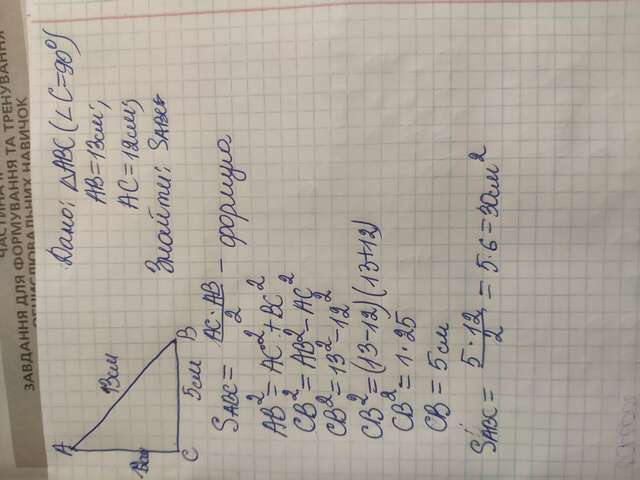 ЧАСТИНА
ЗАВДАННЯ ДЛЯ ФОРМУВАННЯ ТА ТРЕНУВАННЯ
ОБЧИСЛЮВАЛЬНИХ НАВИЧОК
Дано: △ABC (∠C=90°)
AB=13см;
AC=12см;
Знайти: SABC
A
13см
12см
C
5см
B
SABC = AC·AB/2 – формула
AB²=AC²+BC²
CB²=AB²-AC²
CB²=13²-12²
CB²=(13-12)(13+12)
CB²=1·25
CB=5см
SABC = 5·12/2 = 5·6=30см²